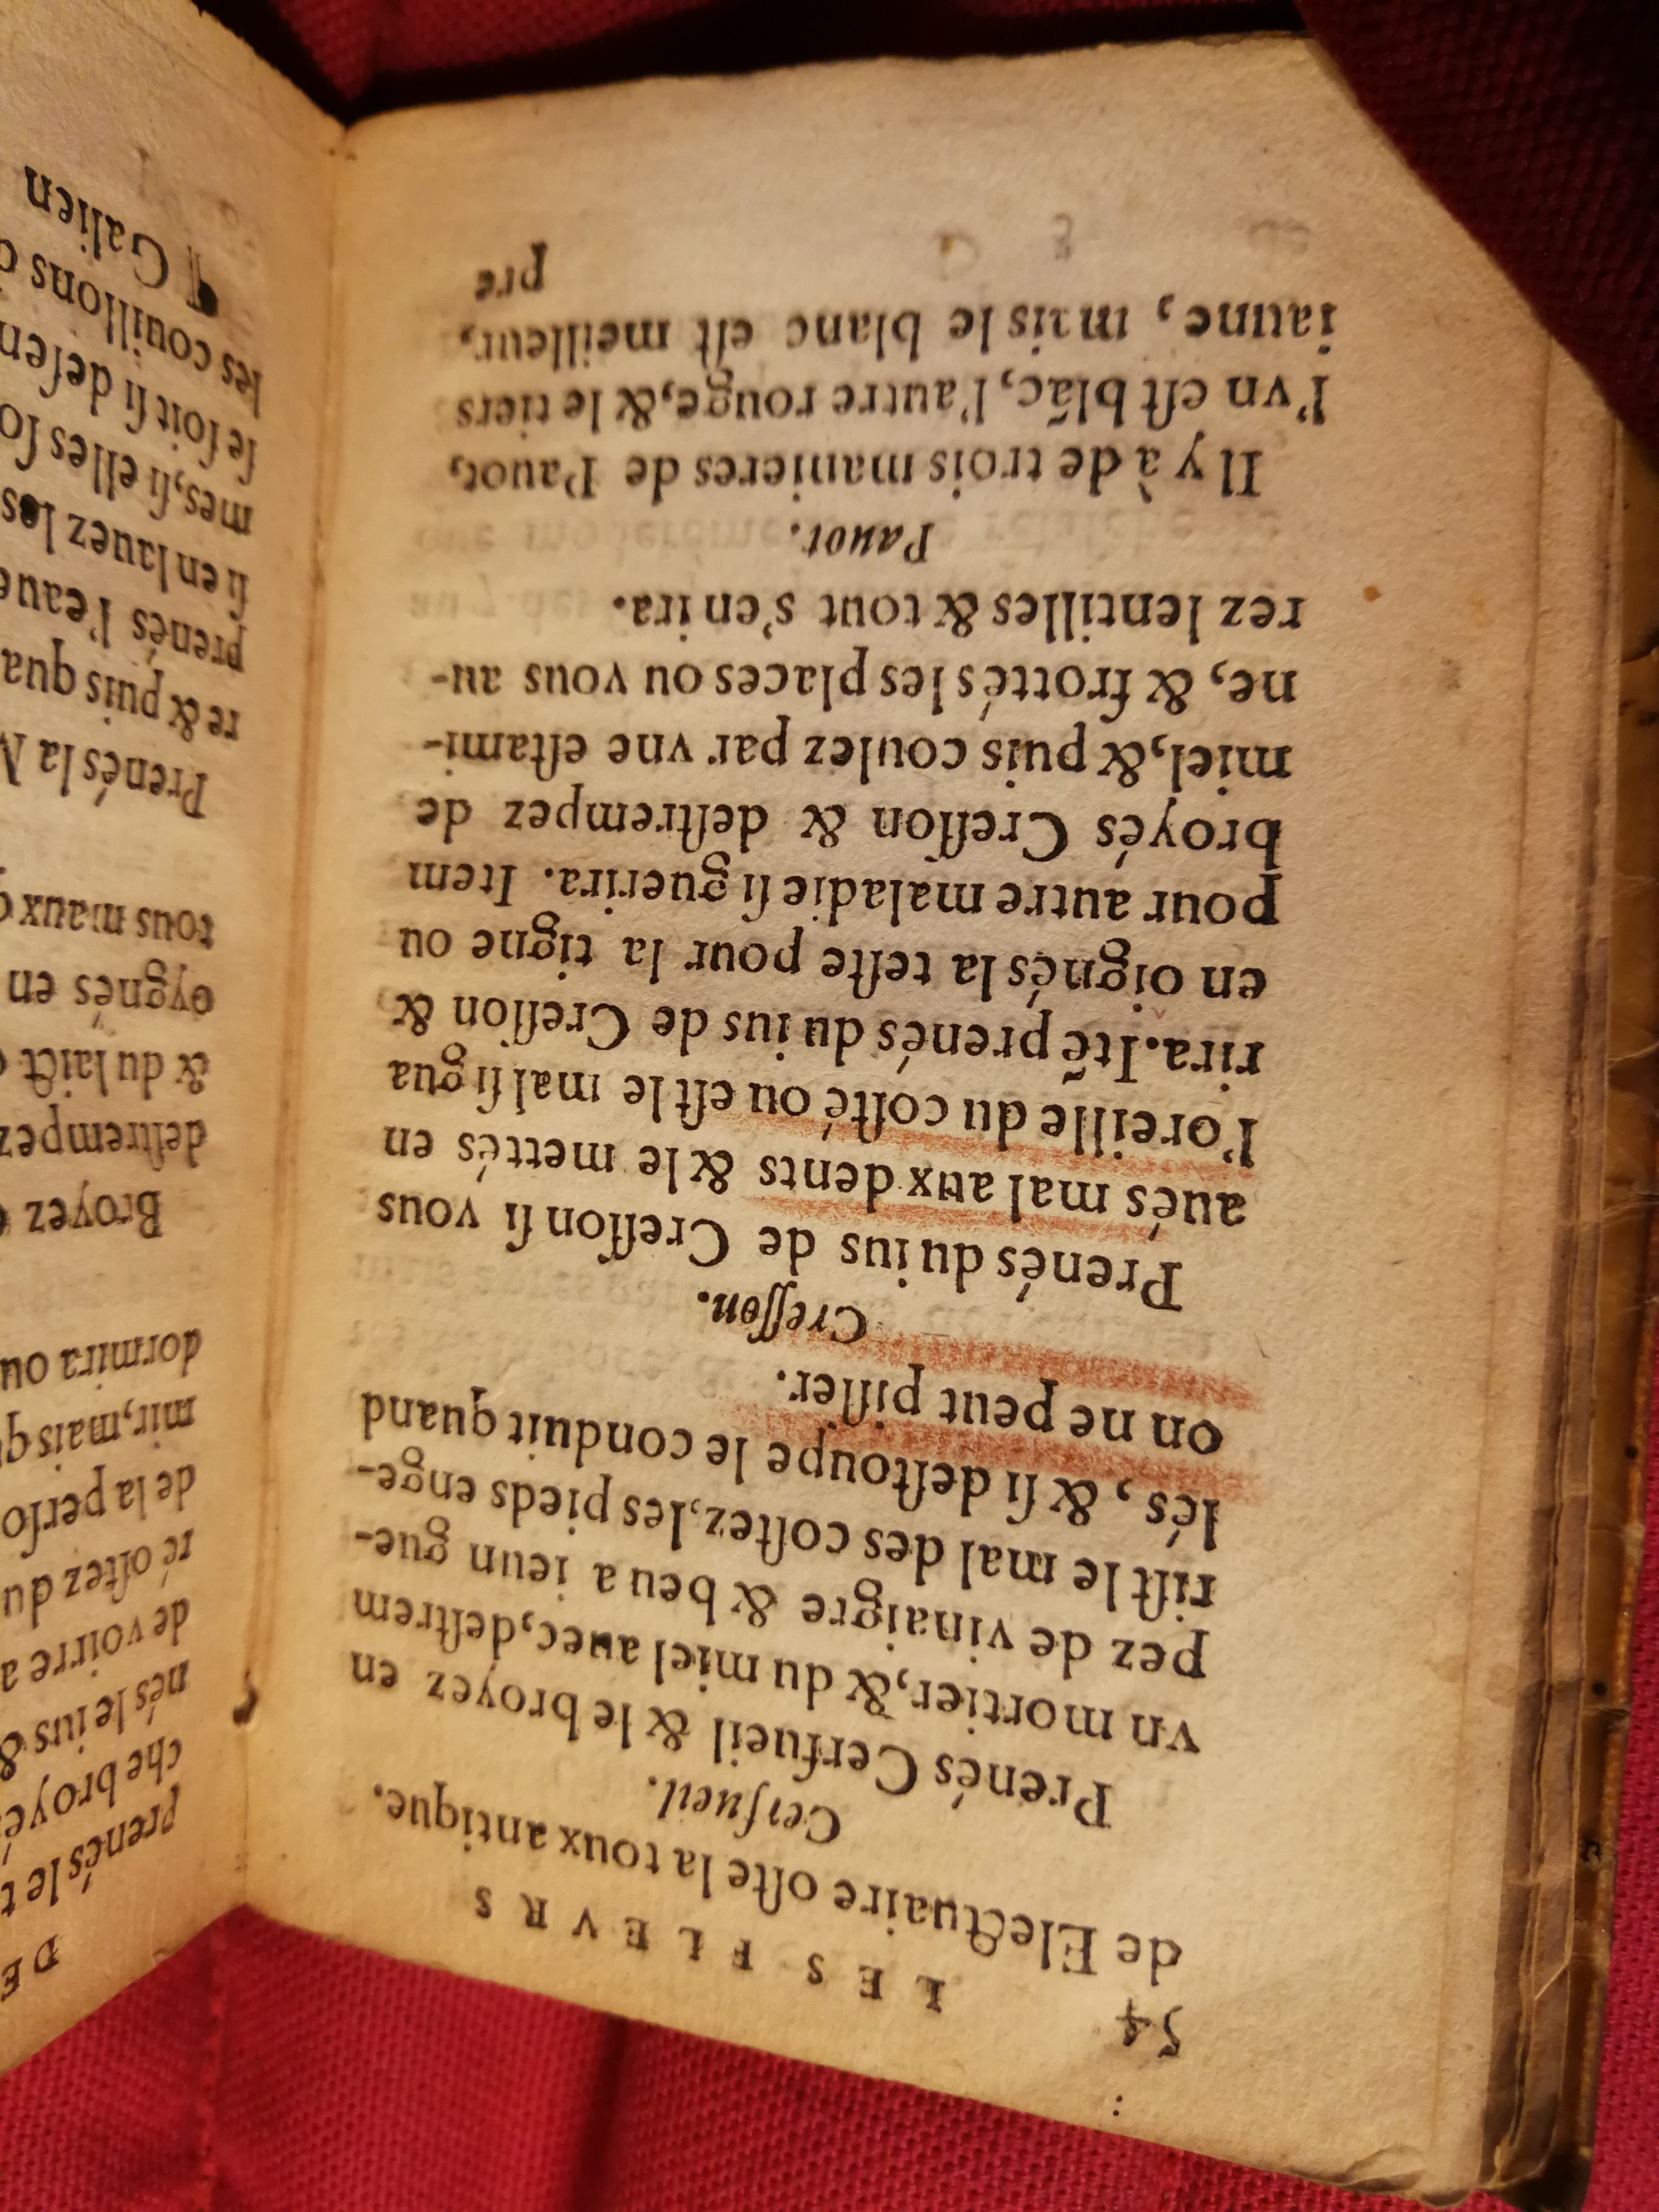 54
LES FLEVRS
de Electuaire oſte la toux antique.
Cerfueil.
Prenés Cerfueil & le broyez en
vn mortier, & du miel auec, deſtrem
pez de vinaigre & beu a ieun gue-
riſt le mal des coſtez, les pieds enge-
lés, & ſi deſtoupe le conduit quand
on ne peut piſſer.
Creſſon.
Prenés du ius de Creſſon ſi vous
aués mal aux dents & le mettés en
l'oreille du coſté ou eſt le mal ſi gua
rira. Itē prenés du ius de Creſſon &
en oignés la teſte pour la tigne ou
pour autre maladie ſi guerira. Item
broyés Creſſon & deſtrempez de
miel, & puis coulez par vne eſtami-
ne, & frottés les places ou vous au-
rez lentilles & tout s'en ira.
Pauot.
Il y à de trois manieres de Pauot,
l'vn eſt blāc, l'autre rouge, & le tiers
iaune, mais le blanc eſt meilleur,
pre
DE
prenés le t
che broyé
nés le ius &
de voirre a
ré oſtez du
de la perſo
mir, mais q
dormira ou
Broyez
deſtrempez
& du laict
oygnés en
tous maux
Prenés la
re & puis qua
prenés l'eaue
ſi en lauez les
mes, ſi elles ſo
ſe ſoit ſi deſen
les couillons
¶ Galien